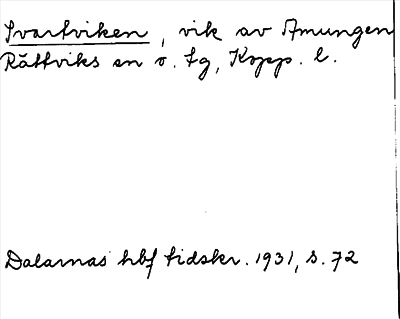 Svartviken, vik av Amungen
Rättviks sn o. tg, Kopp. l.
Dalarnas hbf tidskr. 1931, s. 72